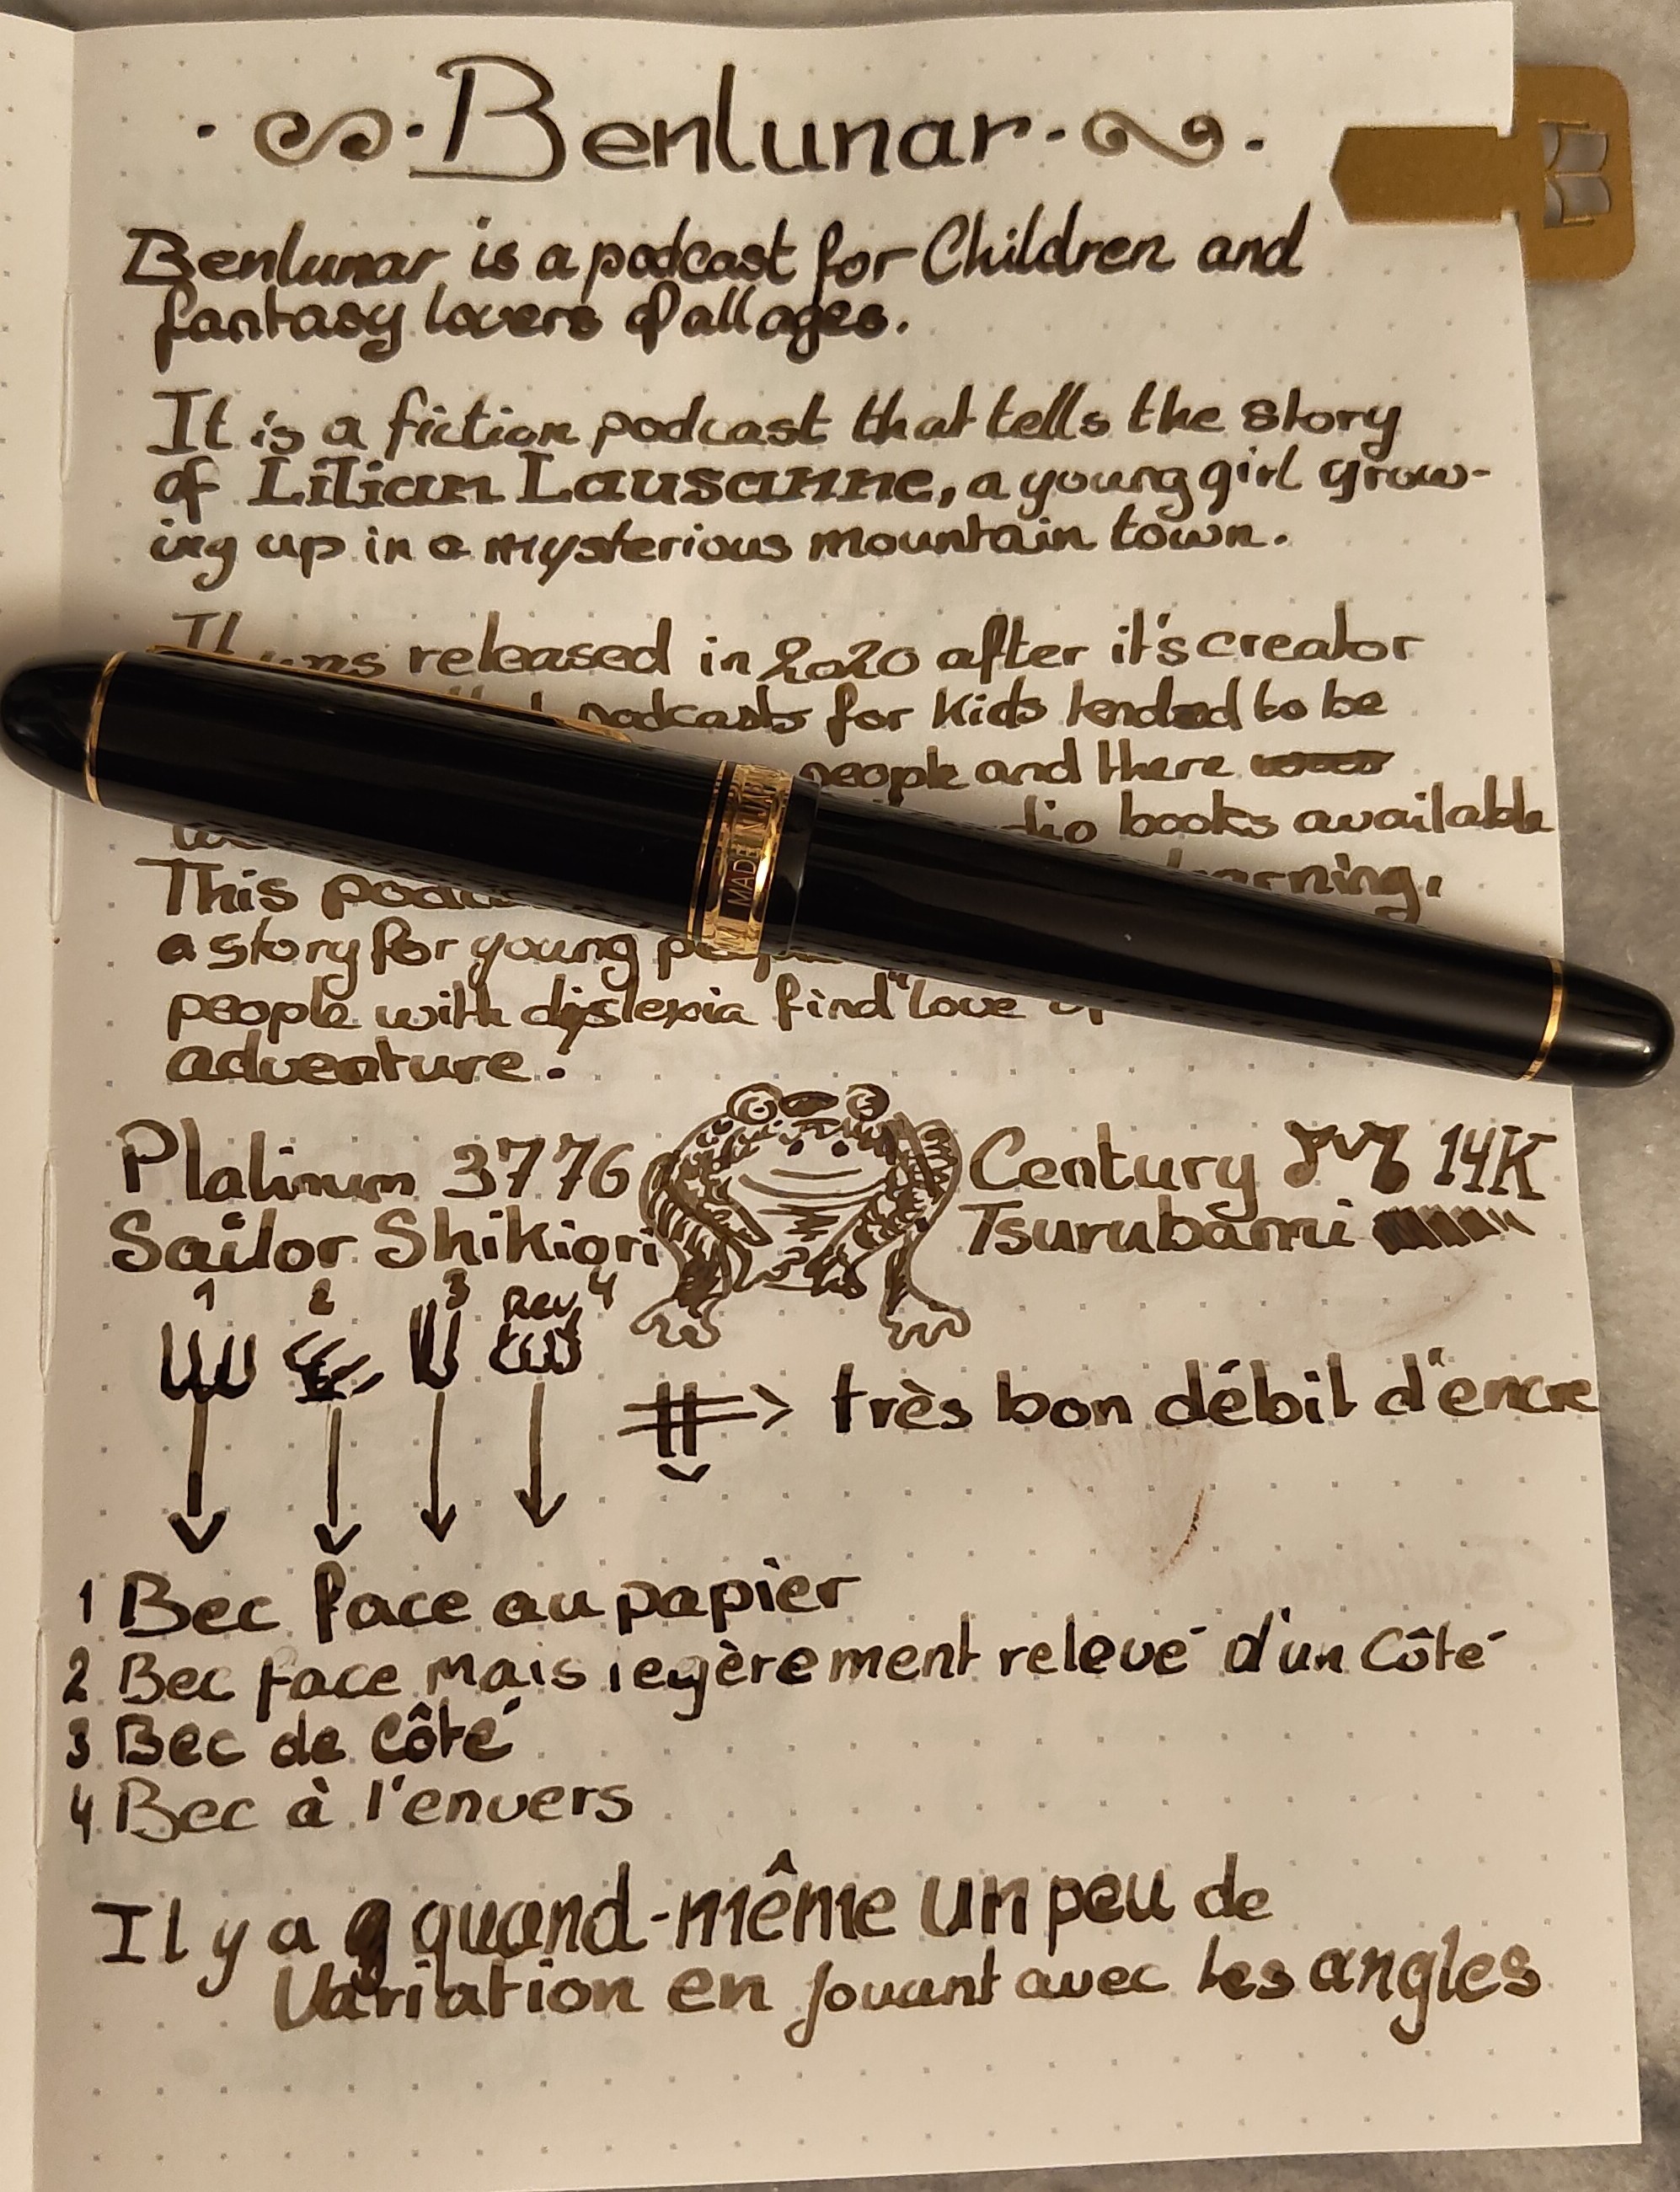 Benlunar
Benlunar is a podcast for Children and
fantasy lovers of all ages.
It is a fiction podcast that tells the story
of Lilian Lausanne, a young girl grow-
ing up in a mysterious mountain town.
It was released in 2020 after it's creator
podcasts for kids tended to be
people and there
books available
This
a story for young
people with dislexia find love
adventure.
Platinum 3776 Century 14K
Sailor Shikiori Tsurubami
1 2 3 Rev. 4
très bon débit d'encre
1 Bec face au papier
2 Bec face mais legèrement relevé d'un Côté
3 Bec de côté
4 Bec à l'envers
Il y a quand-même un peu de
Variation en jouant avec les angles
MADE IN JAPAN